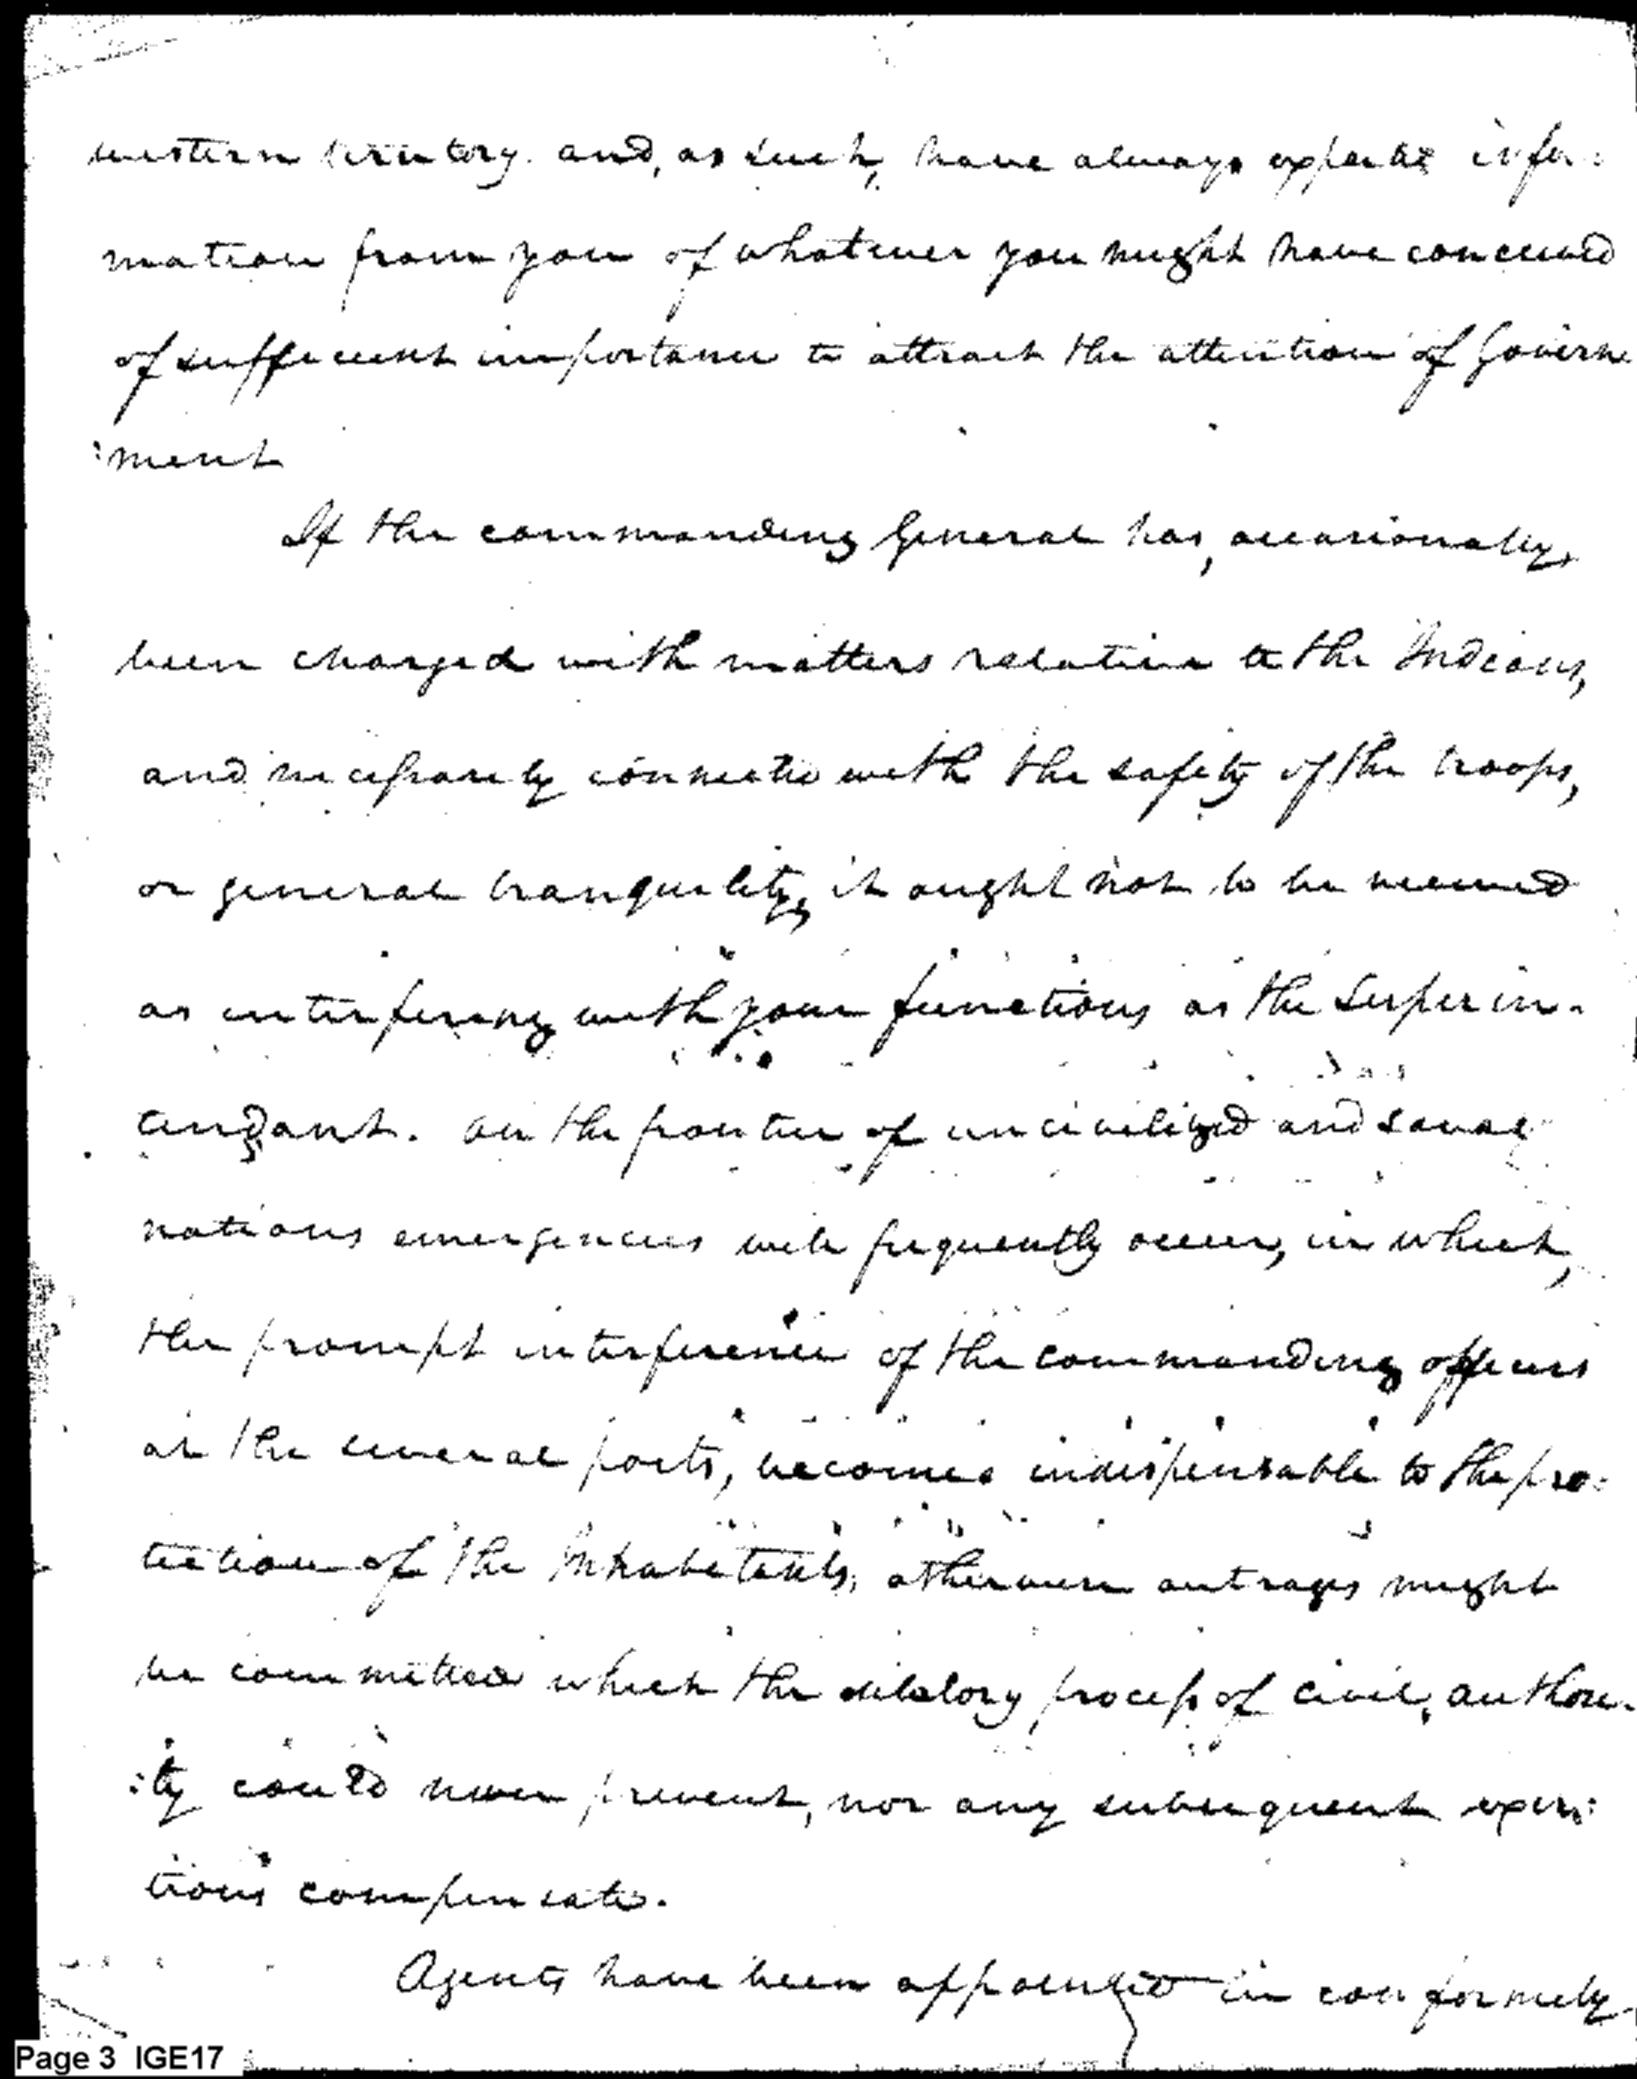 western territory. and, as such, have always expected infor:
mation from you of whatever you might have conceived
of sufficient importance to attract the attention of Govern
:ment
If the commanding General has, occasionally,
been charged with matters relative to the Indians,
and necessarily connected with the safety of the troops,
or general tranquility, it ought not to be viewed
as interfering with your functions as the Superin-
tendant. On the frontier of uncivilized and savage
nations emergencies will frequently occur, in which,
the prompt interference of the commanding officers
at the several posts, becomes indispensable to the pro:
tection of the Inhabitants, otherwise outrages might
be committed which the dilatory process of civil, author-
:ity could never prevent, nor any subsequent exer:
tions compensate.
Agents have been appointed in conformity
Page 3 IGE17